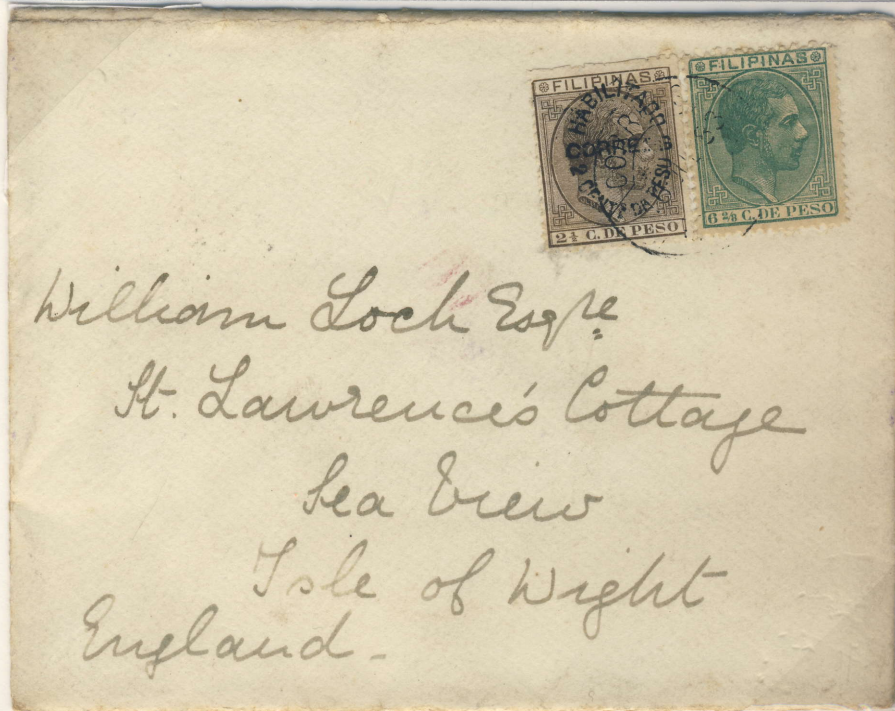 FILIPINAS
HABILITADO
CORRE
CENTS DE PESO
2 4/8 C. DE PESO
FILIPINAS
6 2/8 C. DE PESO
William Loch Esqre
St. Lawrence's Cottage
Sea View
Isle of Wight
England -